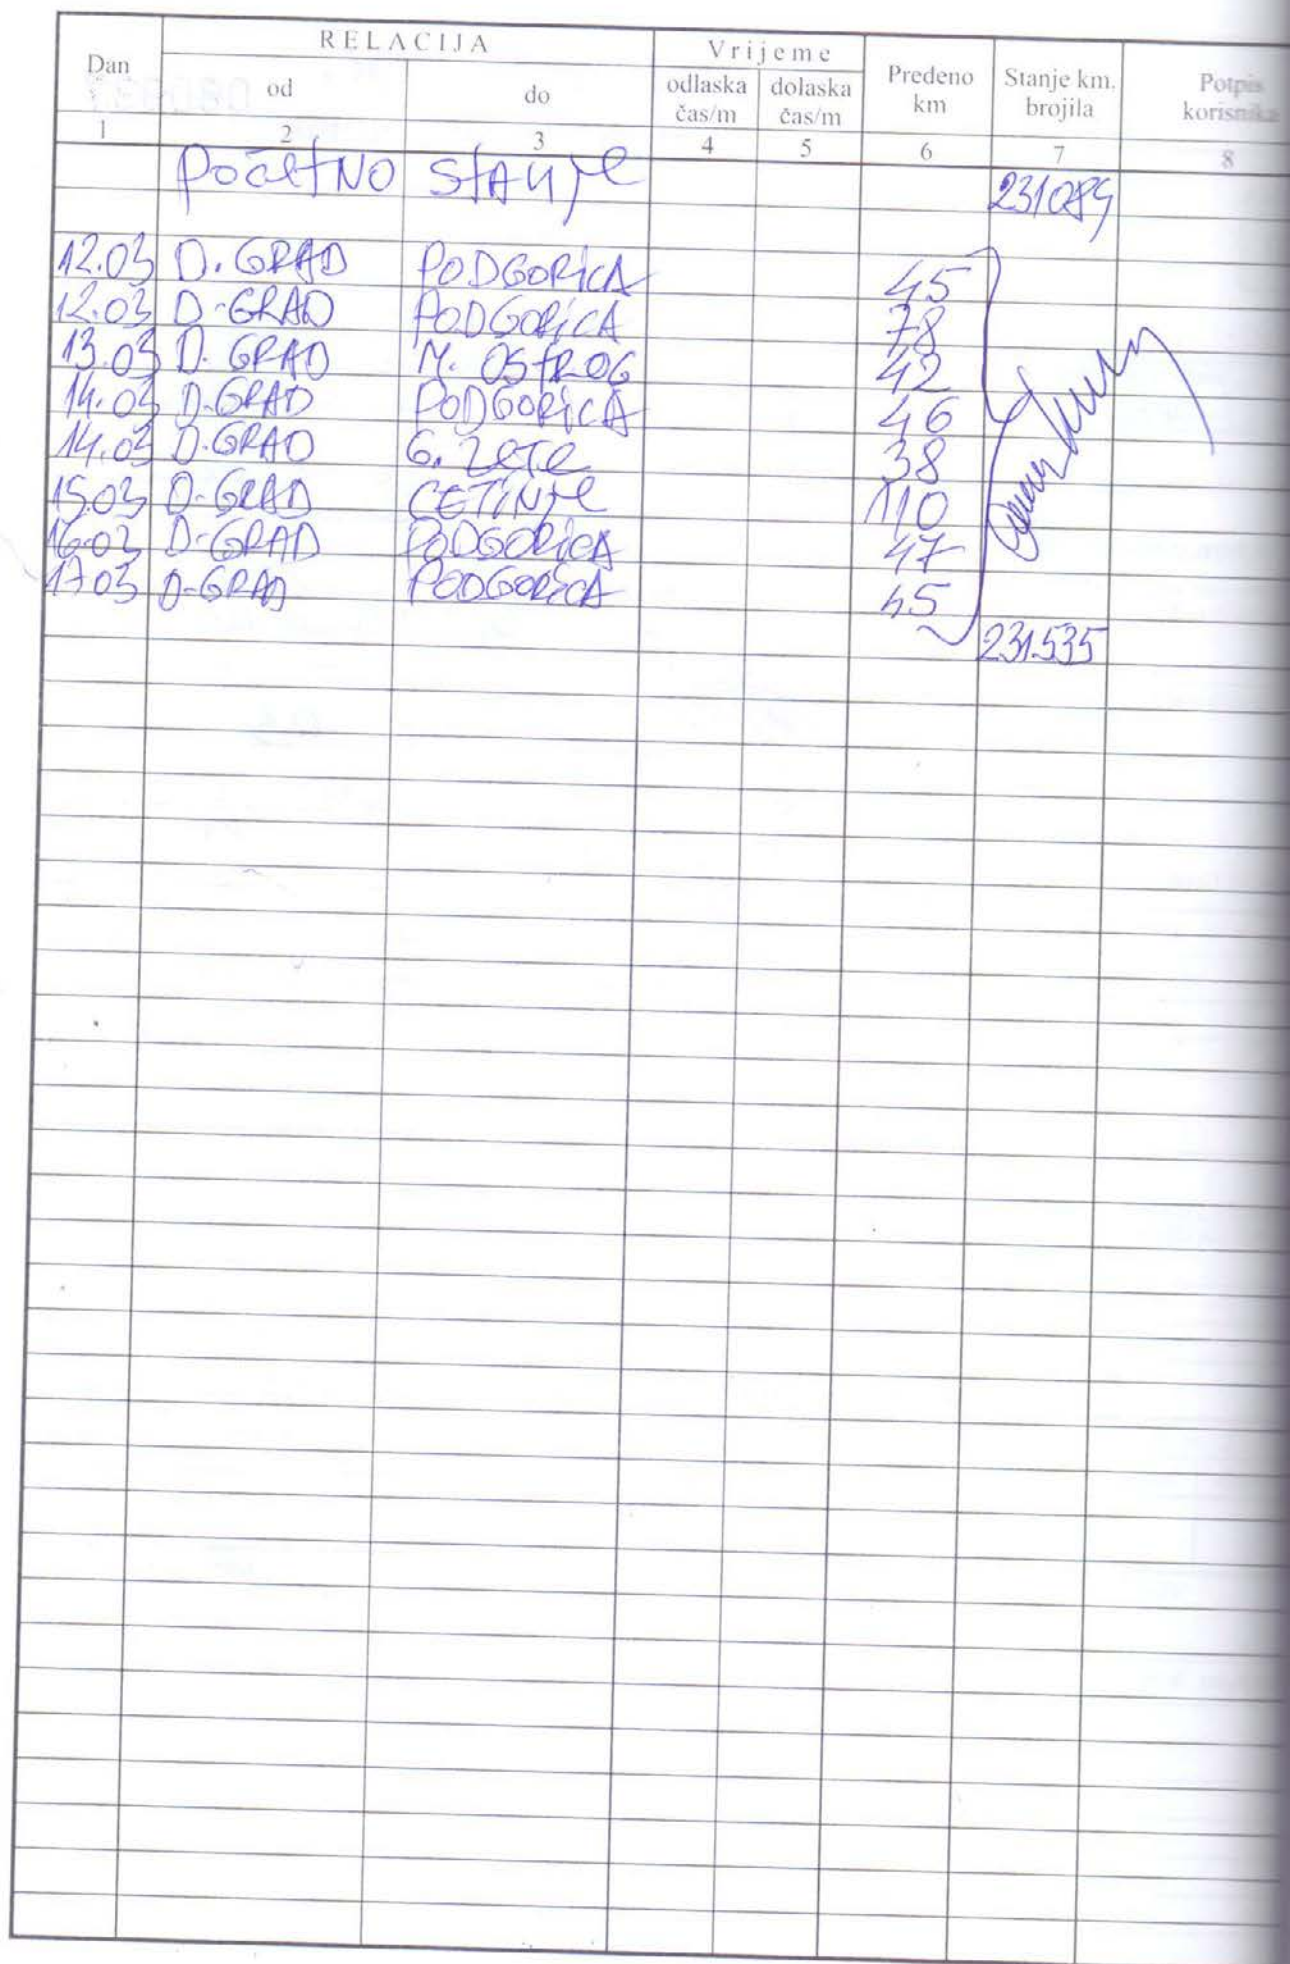 RELACIJA Vrijeme
Dan od do odlaska čas/m dolaska čas/m Pređeno km Stanje km. brojila Potpis korisnika
1 2 3 4 5 6 7 8
Početno stanje 231089
12.03 D. GRAD PODGORICA 45
12.03 D-GRAD PODGORICA 78
13.03 D. GRAD M. OSTROG 42
14.03 D-GRAD PODGORICA 46
14.03 D.GRAD G. ZETE 38
15.03 D-GRAD CETINJE 110
16.03 D-GRAD PODGORICA 47
17.03 D-GRAD PODGORICA 45
231.535